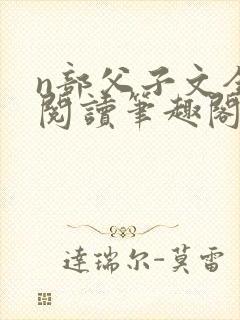 n部父子文全
閱讀筆趣閣
達瑞尔-莫雷